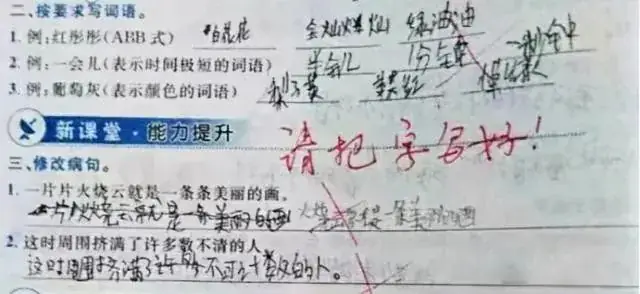 二、按要求写词语。
1. 例:红彤彤(ABB 式) 白花花 金灿灿 绿油油
2. 例:一会儿(表示时间极短的词语) 半会儿 1分钟
3. 例:葡萄灰(表示颜色的词语)
新课堂·能力提升
请把字写好!
三、修改病句。
1. 一片片火烧云就是一条条美丽的画。
一片火烧云就是一条美丽的画 火烧云就是一条美丽的画
2. 这时周围挤满了许多数不清的人。
这时周围挤满了许多不可计数的人。